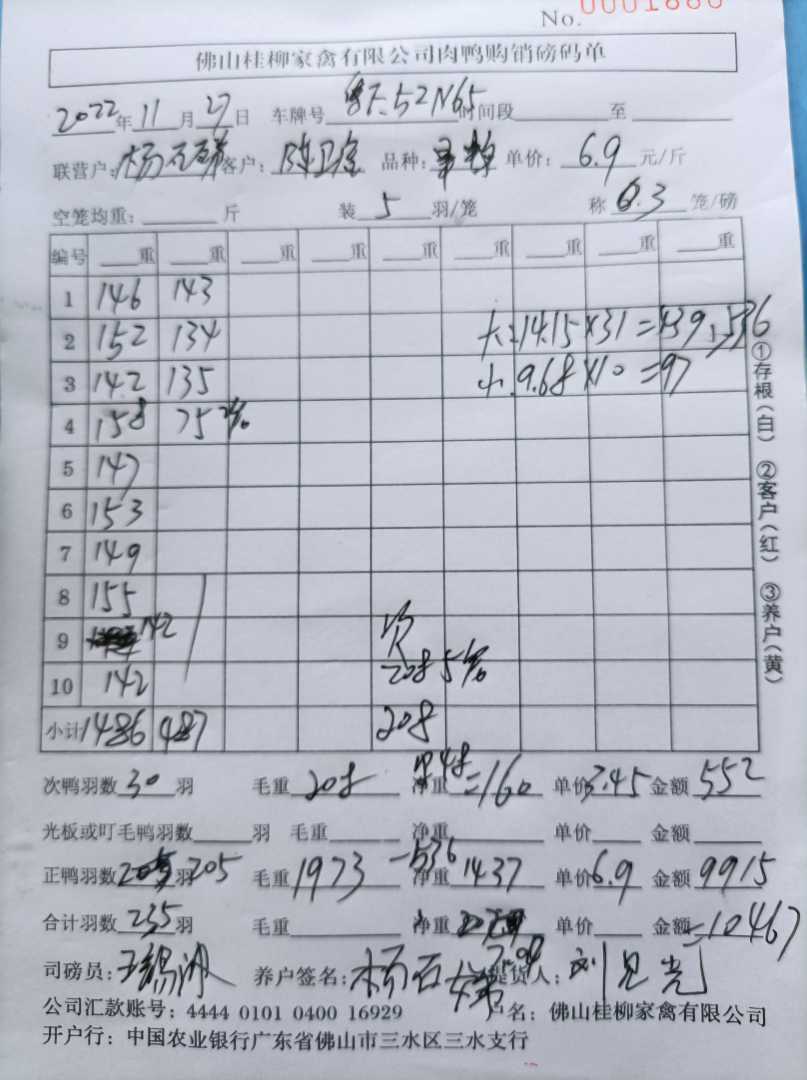 No. 0001880
佛山桂柳家禽有限公司肉鸭购销磅码单
2022年11月27日 车牌号 52N65 时间段 至
联营户: 杨石 客户: 陈卫 品种: 单价: 6.9 元/斤
空笼均重: 斤 装 5 羽/笼 称 6.3 笼/磅
编号 重 重 重 重 重 重 重 重 重
1 146 143
2 152 134 大:14.15×31=439 536
3 142 135 小:9.68×10=97
4 158 75
5 147
6 153
7 149
8 155
9 142 次
10 142 208 5
小计 1486 487 208
次鸭羽数 30 羽 毛重 208 净重 48=160 单价 3.45 金额 552
光板或叮毛鸭羽数 羽 毛重 净重 单价 金额
正鸭羽数 205 羽 205 毛重 1973 -536 净重 1437 单价 6.9 金额 9915
合计羽数 235 羽 毛重 净重 单价 金额=10467
司磅员: 养户签名: 杨石 提货人: 刘见光
公司汇款账号: 4444 0101 0400 16929 户名: 佛山桂柳家禽有限公司
开户行: 中国农业银行广东省佛山市三水区三水支行
①存根(白) ②客户(红) ③养户(黄)